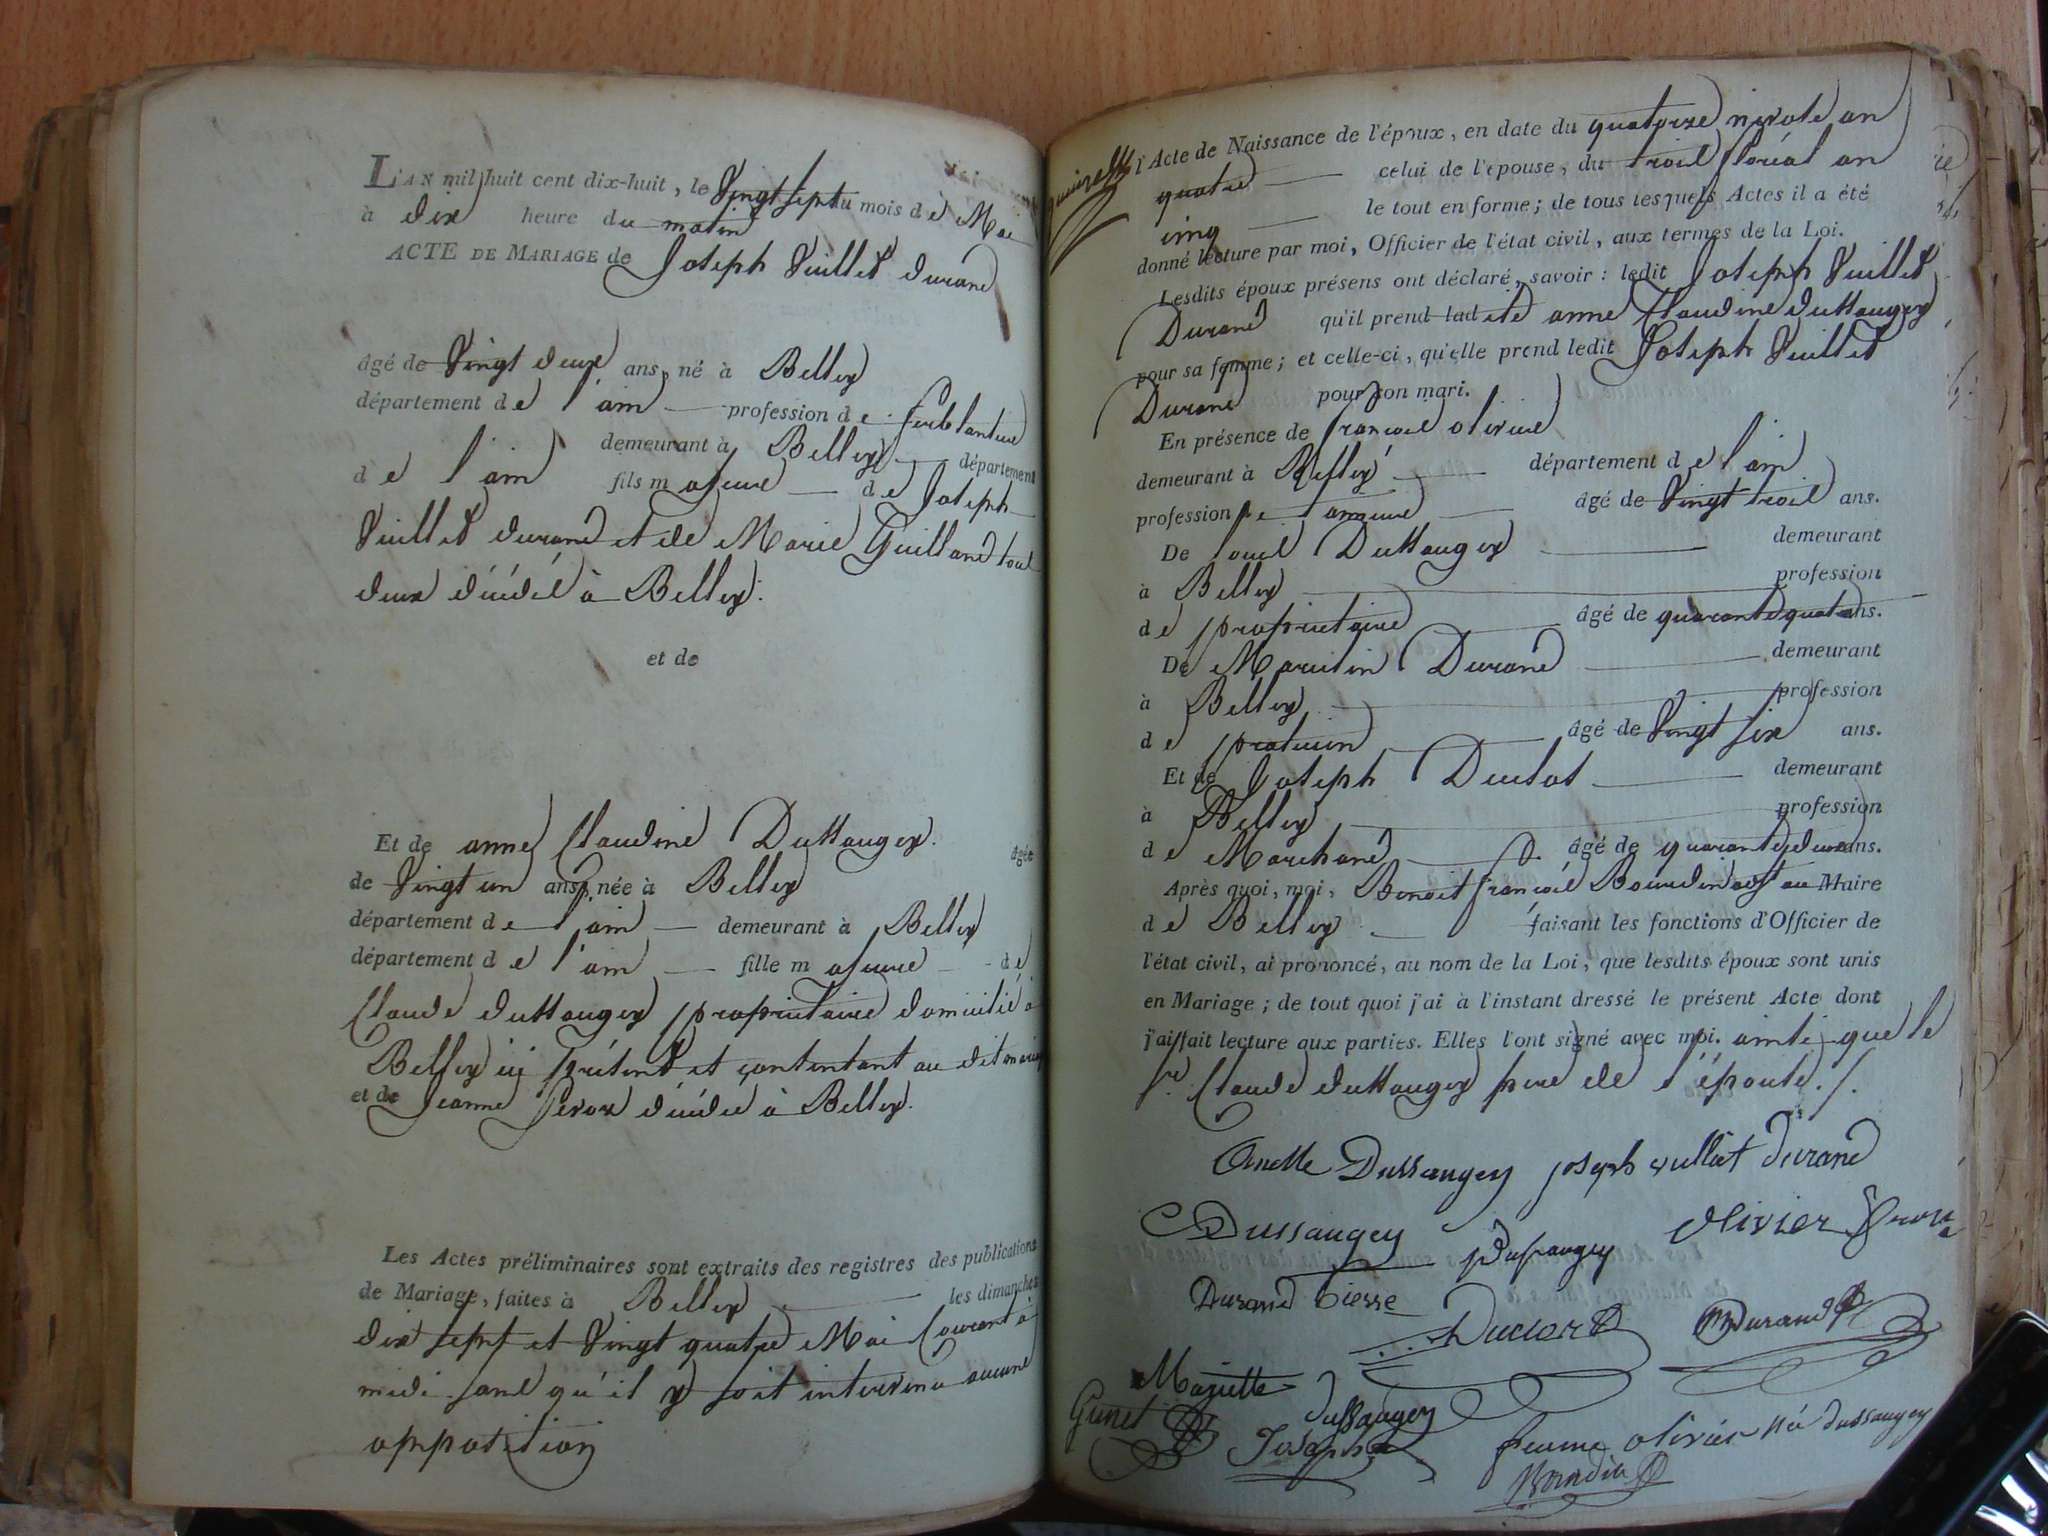 L'AN mil huit cent dix-huit, le Vingt sept du mois de Mai
à dix heure du matin
ACTE DE MARIAGE de Joseph Vuillet durand
âgé de Vingt deux ans, né à Belley
département de l'ain profession de ferblantier
demeurant à Belley département
de l'ain fils majeur de Joseph
Vuillet durand et de Marie Guilland tous
deux décédés à Belley.
et de
Et de anne Claudine Dussaugey. âgée
de Vingt un ans, née à Belley
département de l'ain demeurant à Belley
département de l'ain fille majeure de
Claude dussaugey propriétaire domicilié à
Belley ici présent et consentant au dit mariage
et de Jeanne décédée à Belley.
Les Actes préliminaires sont extraits des registres des publications
de Mariage, faites à Belley les dimanches
dix sept et Vingt quatre Mai Courant à
midi sans qu'il y soit intervenu aucune
opposition
l'Acte de Naissance de l'époux, en date du quatorze nivose an
quatre celui de l'épouse, du trois floréal an
cinq le tout en forme; de tous lesquels Actes il a été
donné lecture par moi, Officier de l'état civil, aux termes de la Loi.
Lesdits époux présens ont déclaré, savoir: ledit Joseph Vuillet
Durand qu'il prend ladite anne Claudine dussaugey
pour sa femme; et celle-ci, qu'elle prend ledit Joseph Vuillet
Durand pour son mari.
En présence de françois olivier
demeurant à Belley département de l'ain
profession de tanneur âgé de Vingt trois ans.
De Louis Dussaugey demeurant
à Belley profession
de propriétaire âgé de quarante quatre ans.
De Durand demeurant
à Belley profession
de praticien âgé de Vingt six ans.
Et de Joseph Duclot demeurant
à Belley profession
de Marchand âgé de quarante deux ans.
Après quoi, moi, Benoit françois Bourdin adjt au Maire
de Belley faisant les fonctions d'Officier de
l'état civil, ai prononcé, au nom de la Loi, que lesdits époux sont unis
en Mariage; de tout quoi j'ai à l'instant dressé le présent Acte dont
j'ai fait lecture aux parties. Elles l'ont signé avec moi. ainsi que le
sr. Claude dussaugey père de l'épouse.
Anette Dussaugey joseph vulliet durand
Dussaugey Dussaugey olivier
Durand Pierre Duclot Durand
Mariette dussaugey
Joseph femme olivier née dussaugey
Bourdin